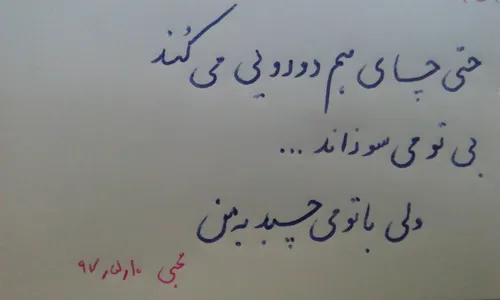 حتی چای هم دورویی می کُند
بی تو می سوزاند ...
ولی با تو می چسبد به من
محبی ۹۷٫۵٫۱۰